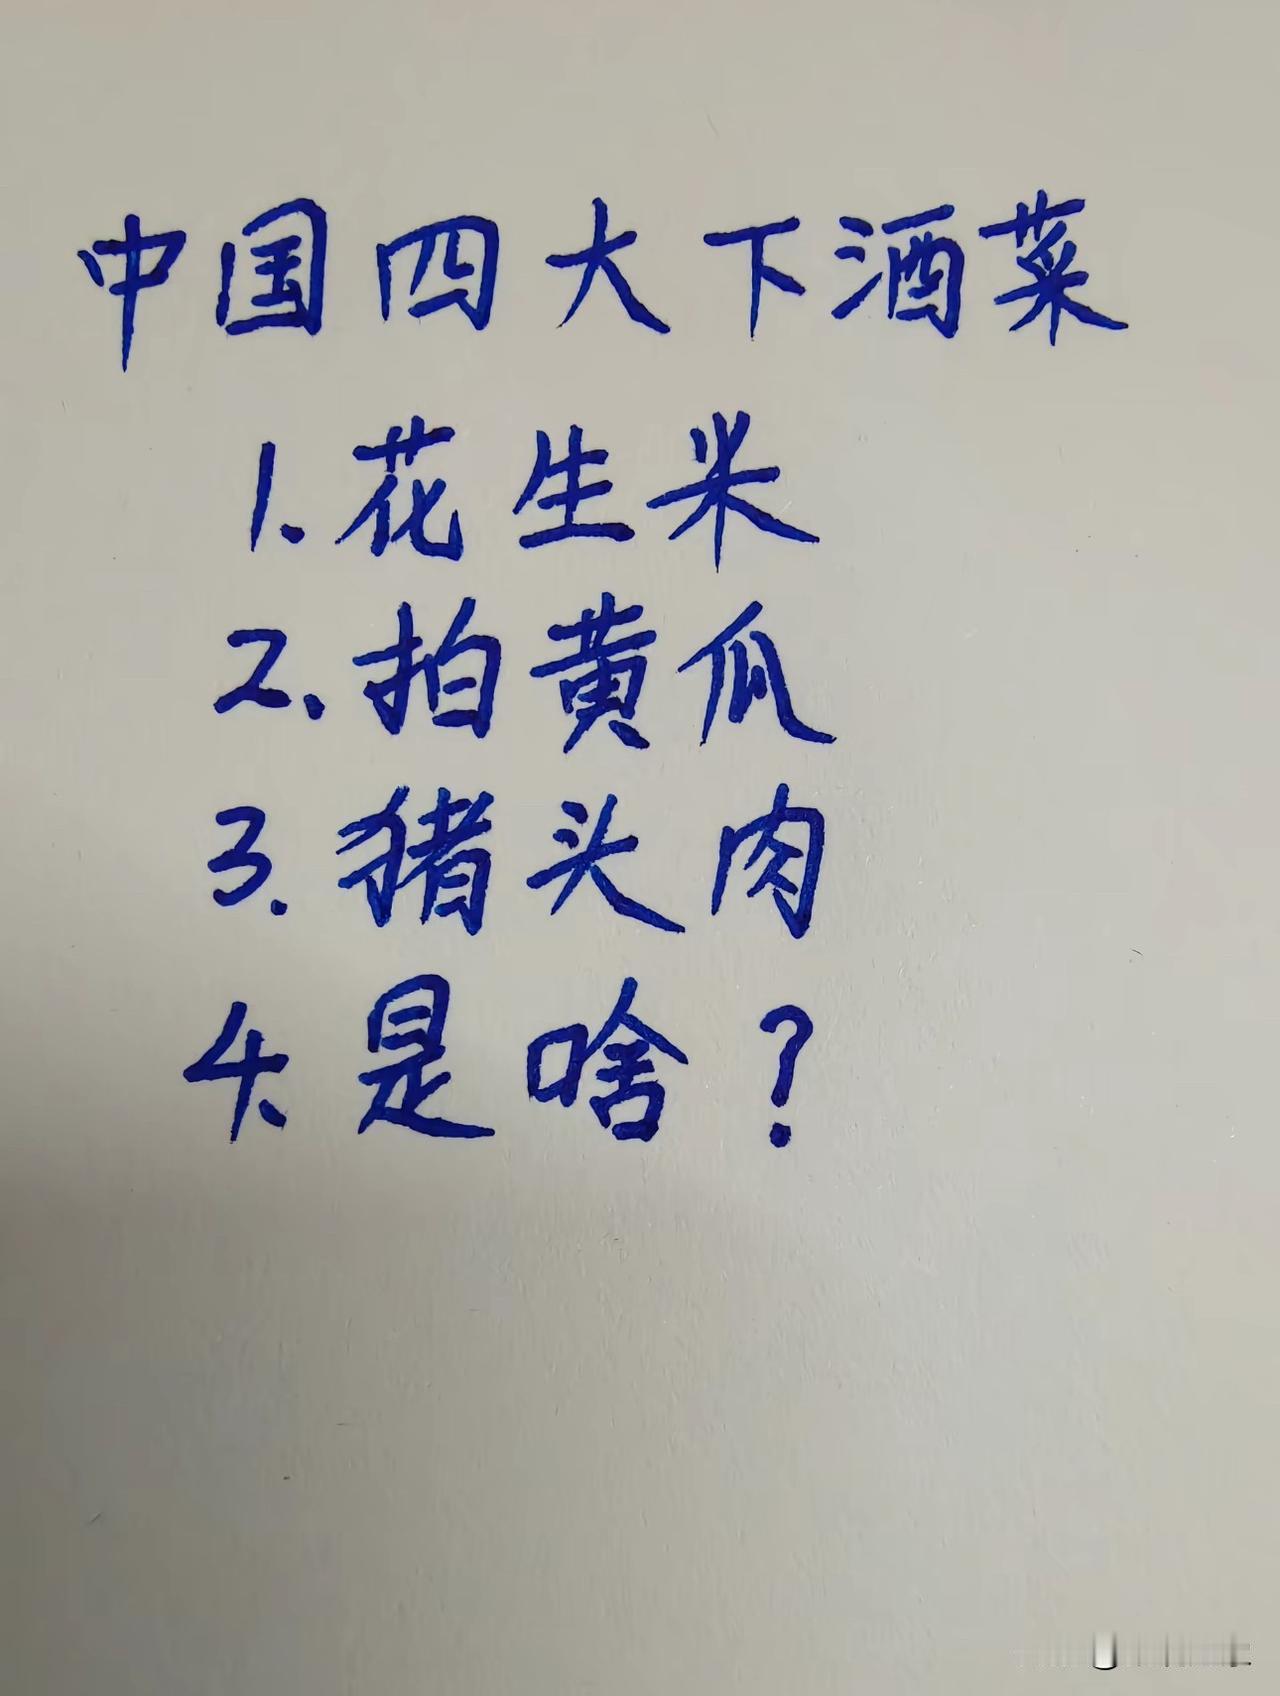 中国四大下酒菜
1.花生米
2.拍黄瓜
3.猪头肉
4.是啥?